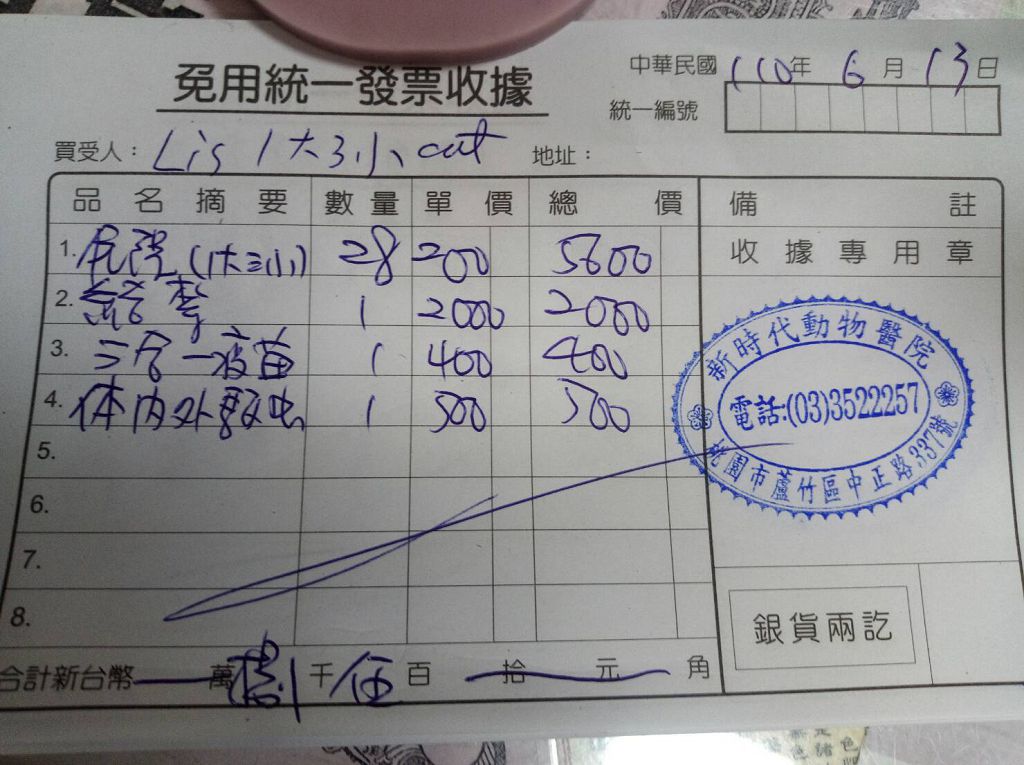 免用統一發票收據
中華民國 110年 6月 13日
統一編號
買受人：Lis 1大3小 cat 地址：
品名摘要 數量 單價 總價 備註
收據專用章
1. 住院 (1大3小) 28 200 5600
2. 結紮 1 2000 2000
3. 三合一疫苗 1 400 400
4. 体內外驅虫 1 500 500
5.
6.
7.
8.
新時代動物醫院
電話:(03)3522257
桃園市蘆竹區中正路337號
銀貨兩訖
合計新台幣 萬 捌千 伍百 拾 元 角